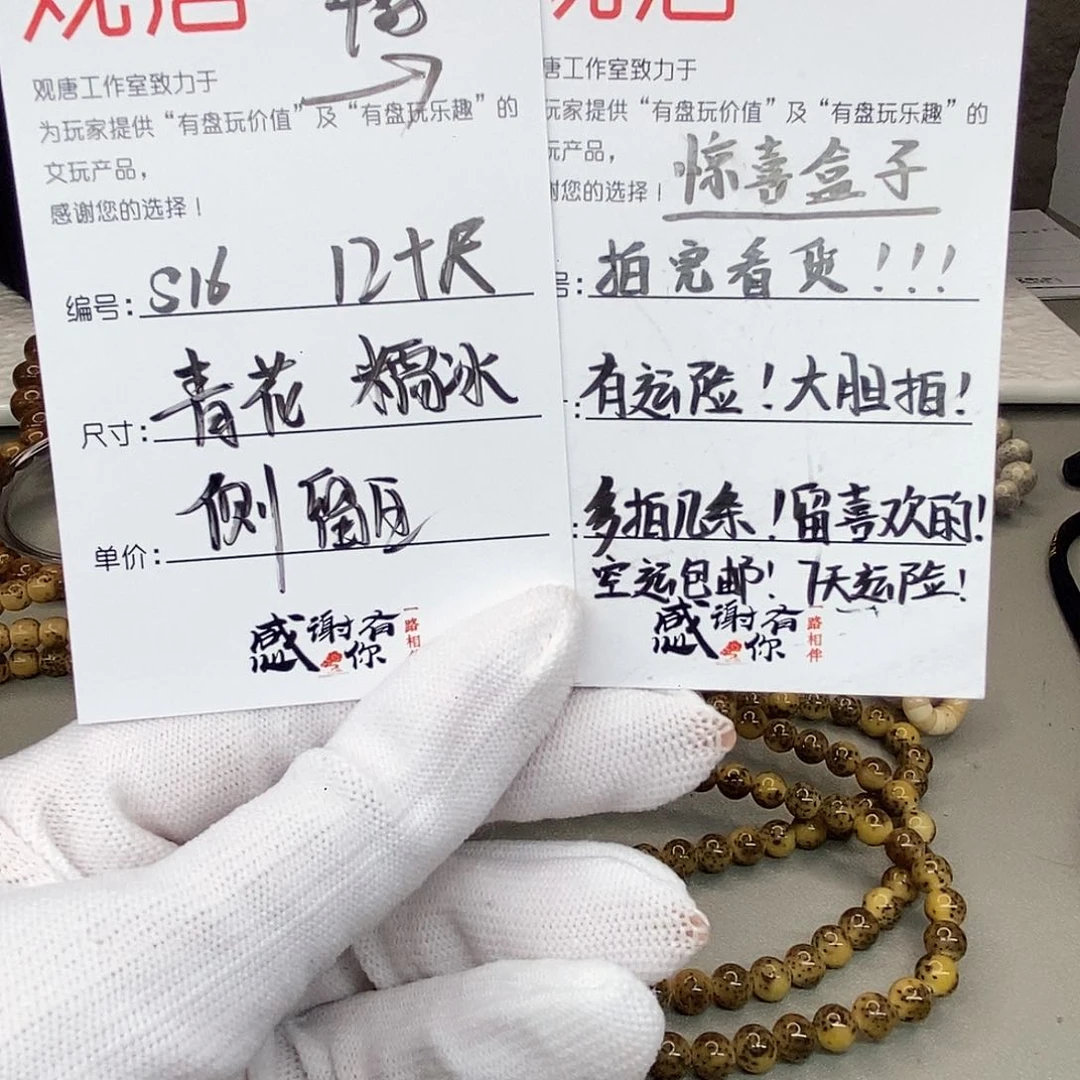 观唐
观唐工作室致力于
为玩家提供“有盘玩价值”及“有盘玩乐趣”的
文玩产品,
感谢您的选择!
编号: S16 12十尺
尺寸: 青花 糯冰
单价: 侧留皮
感谢有你
一路相伴
观唐
唐工作室致力于
玩家提供“有盘玩价值”及“有盘玩乐趣”的
玩产品,
谢您的选择!
惊喜盒子
号: 拍完看货!!!
: 有运险!大胆拍!
: 多拍几条!留喜欢的!
空运包邮!7天运险!
感谢有你
一路相伴